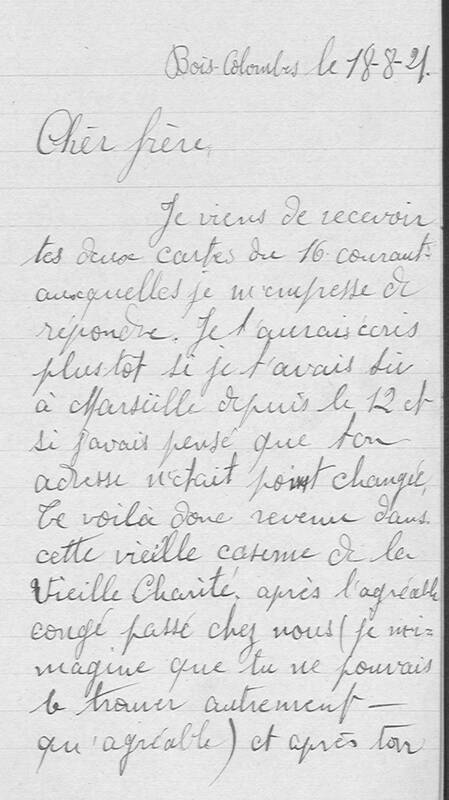 Bois-Colombes le 18-8-21.
Chèr frère,
Je viens de recevoir
tes deux cartes du 16 courant
auxquelles je m'empresse de
répondre. Je t'aurais écris
plustot si je t'avais su
à Marseille depuis le 12 et
si j'avais pensé que ton
adresse n'était point changée.
Te voilà donc revenu dans
cette vieille caserne de la
Vieille Charité, après l'agréable
congé passé chez nous (je m'i=
magine que tu ne pouvais
le trouver autrement —
qu'agréable) et après ton